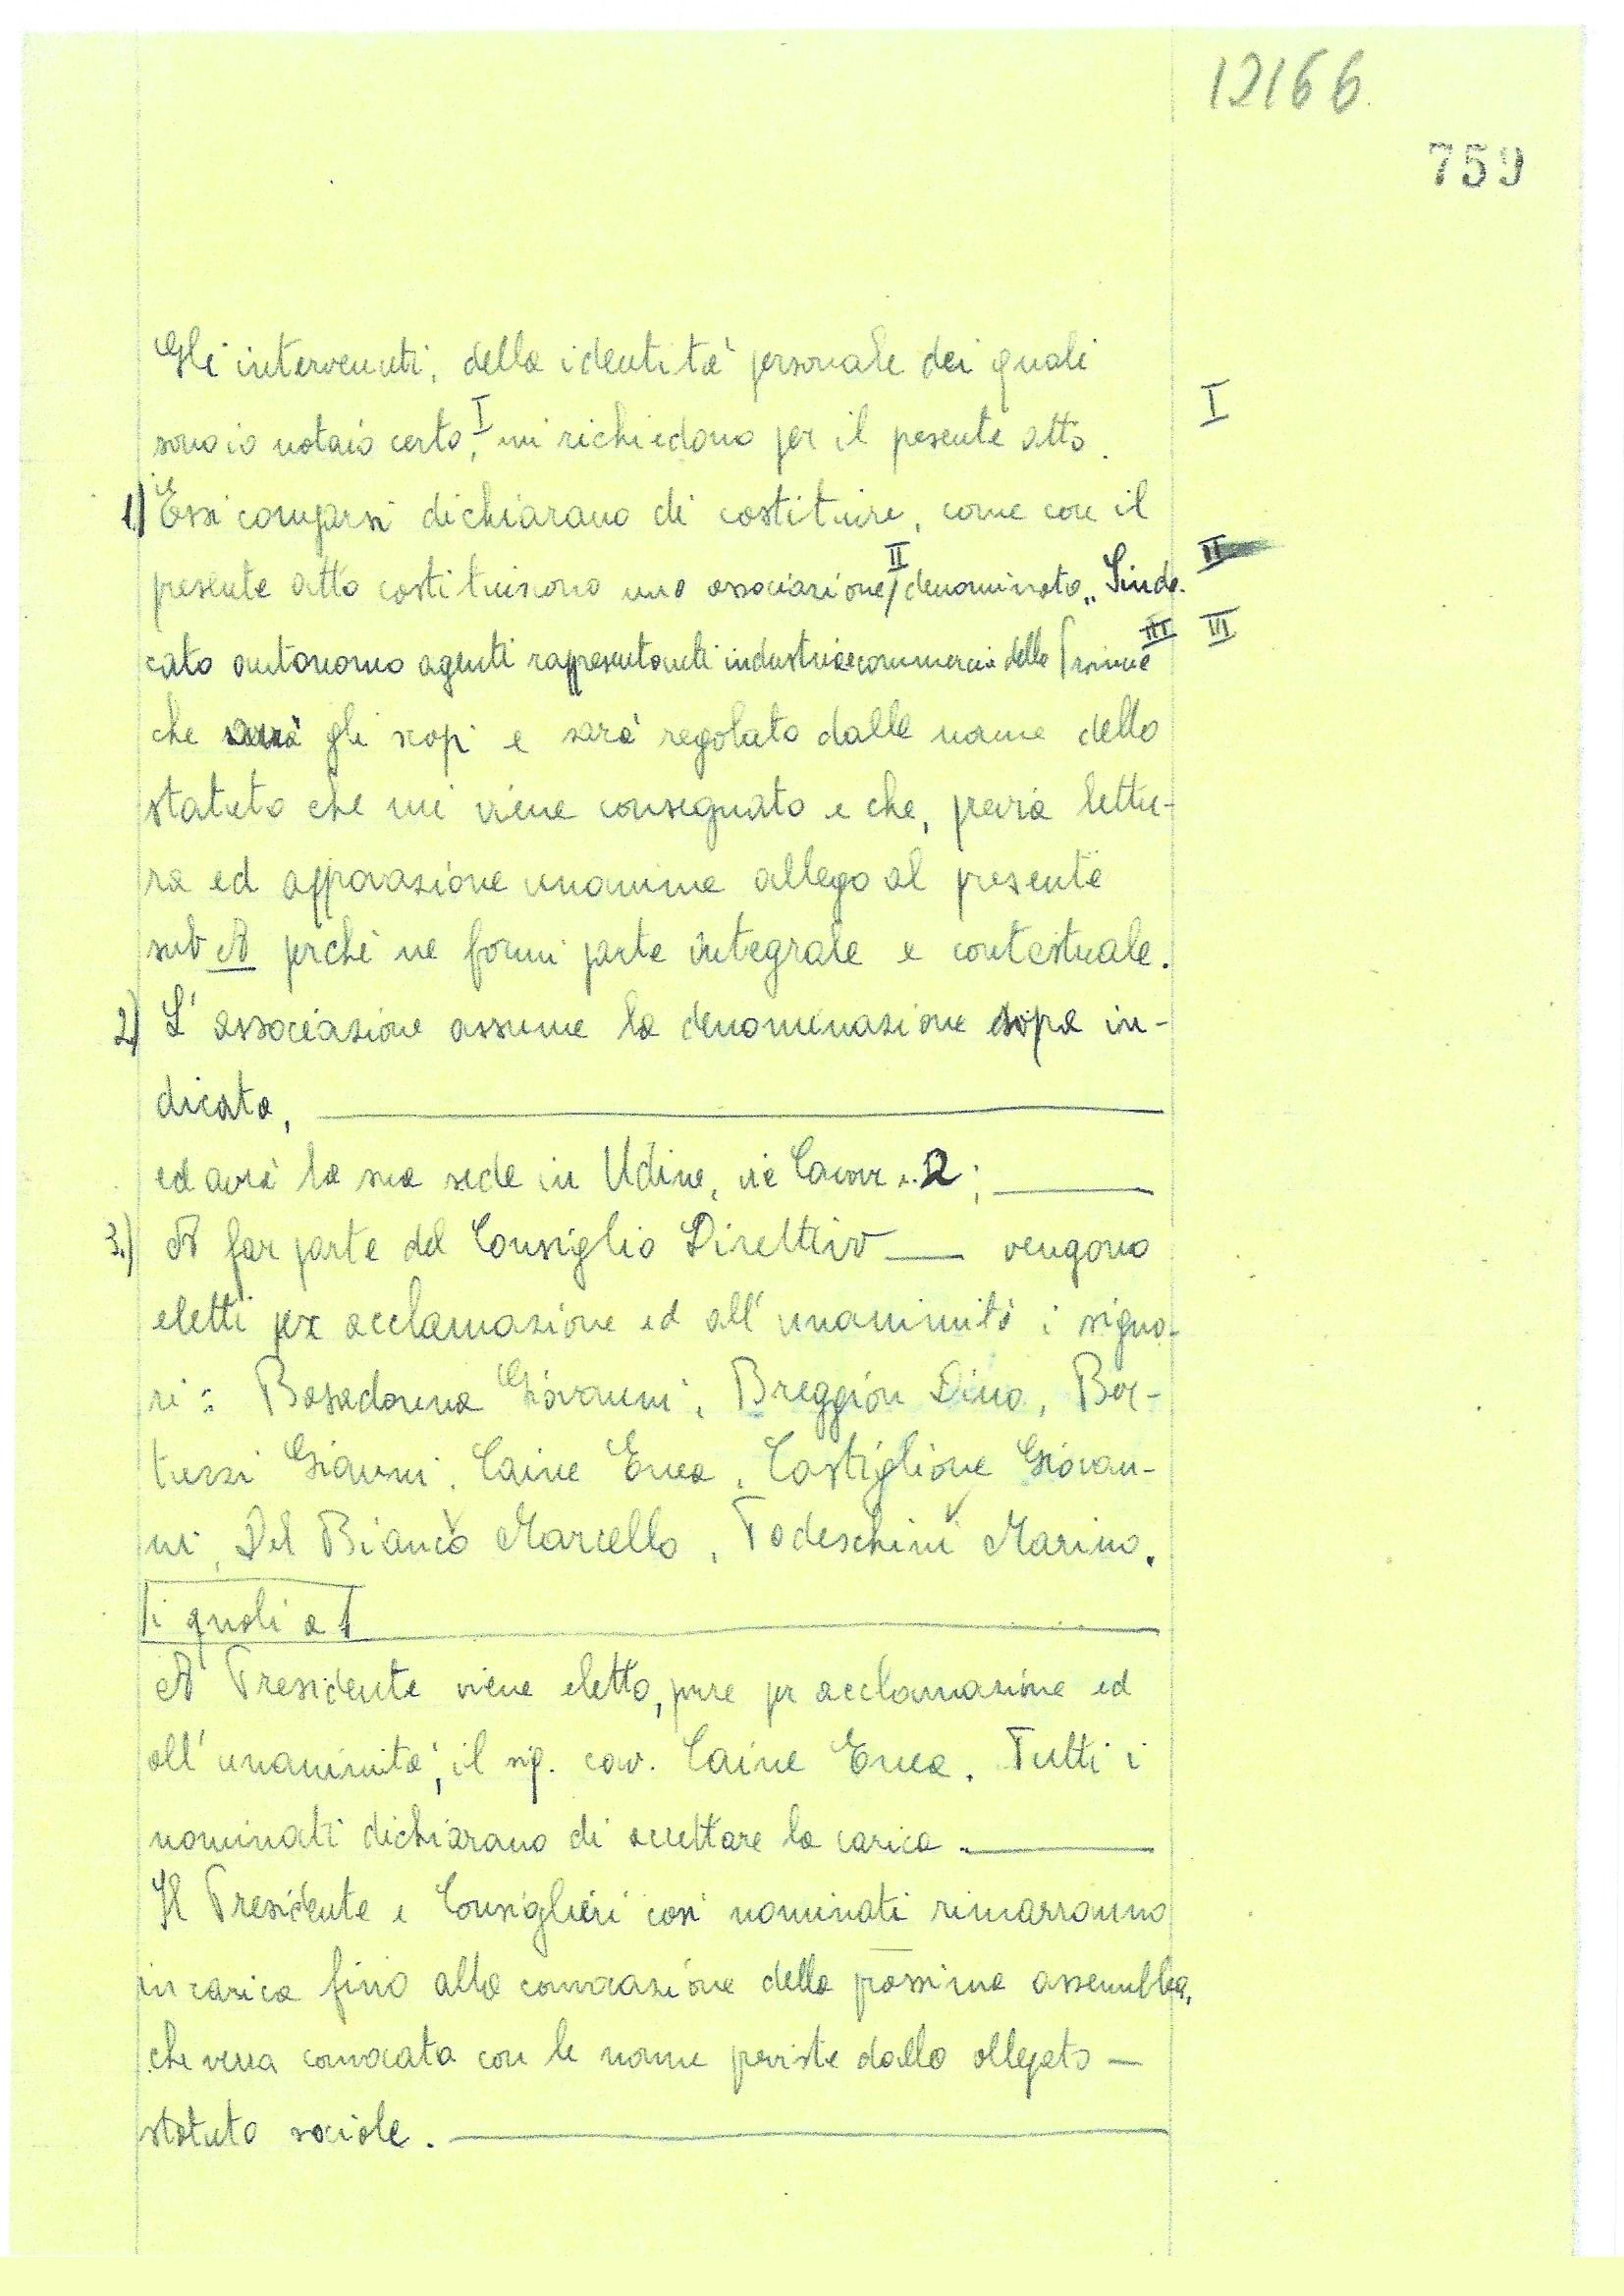 12166
759
Gli intervenuti, della identità personale dei quali
sono io notaio certo, I mi richiedono per il presente atto.
I
1) Essi comparsi dichiarano di costituire, come con il
presente atto costituiscono una associazione II denominata „Sinda-
II
cato autonomo agenti rappresentanti industria e commercio della III
III
che avrà gli scopi e sarà regolato dalle norme dello
statuto che mi viene consegnato e che, previa lettu-
ra ed approvazione unanime allego al presente
sub A perché ne formi parte integrale e contestuale.
2) L'associazione assume la denominazione sopra in-
dicata,
ed avrà la sua sede in Udine, via Cavour n. 2;
3.) A far parte del Consiglio Direttivo — vengono
eletti per acclamazione ed all'unanimità i signo-
ri: Basadonna Giovanni, Breggion Dino, Bor-
tuzzi Gianni, Caine Enea, Castiglione Giovan-
ni, Del Bianco Marcello, Todeschini Marino.
i quali a
A Presidente viene eletto, pure per acclamazione ed
all'unanimità, il sig. cav. Caine Enea. Tutti i
nominati dichiarano di accettare la carica.
Il Presidente e Consiglieri così nominati rimarranno
in carica fino alla convocazione della prossima assemblea,
che verra convocata con le norme previste dallo allegato —
statuto sociale.